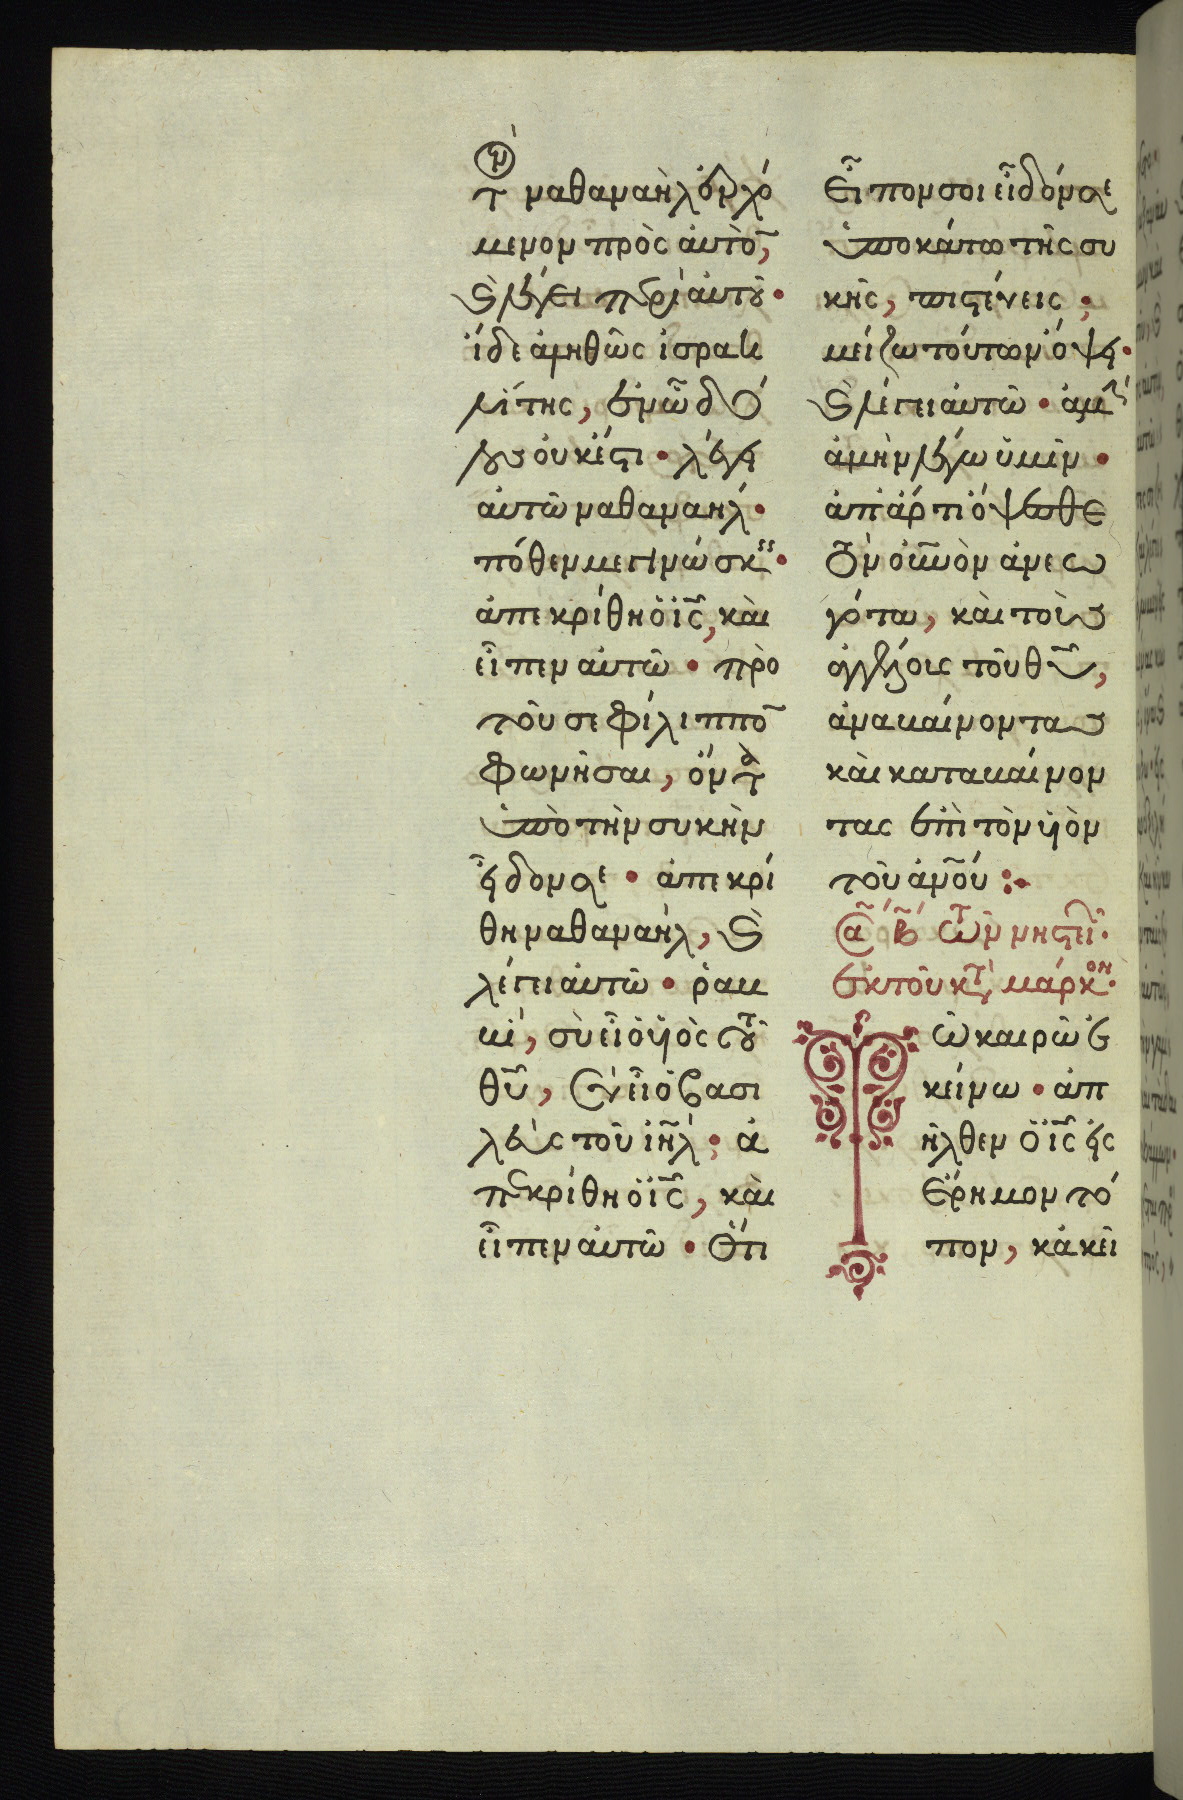 τὸν ναθαναὴλ ἐρχό
μενον πρὸς αὐτὸν,
καὶ λέγει περὶ αὐτοῦ·
ἴδε ἀληθῶς ἰσραη
λίτης, ἐν ὧ δό
λος οὐκ ἔστι· λέγει
αὐτῶ ναθαναήλ·
πόθεν με γινώσκεις·
ἀπεκρίθη ὁ ἰς, καὶ
εἶπεν αὐτῶ· πρὸ
τοῦ σε φίλιππον
φωνῆσαι, ὄντα
ὑπὸ τὴν συκὴν
εἶδόν σε· ἀπεκρί
θη ναθαναήλ, καὶ
λέγει αὐτῶ· ῥαβ
βί, σὺ εἶ ὁ υἱὸς τοῦ
θῦ, σὺ εἶ ὁ βασι
λεὺς τοῦ ἰηλ· ἀ
πεκρίθη ὁ ἰς, καὶ
εἶπεν αὐτῶ· ὅτι
εἶπόν σοι εἶδόν σε
ὑποκάτω τῆς συ
κῆς, πιστεύεις;
μείζω τούτων ὄψει·
καὶ λέγει αὐτῶ· ἀμὴν
ἀμὴν λέγω ὑμῖν·
ἀπάρτι ὄψεσθε
τὸν οὐνὸν ἀνεω
γότα, καὶ τοὺς
ἀγγέλους τοῦ θῦ,
ἀναβαίνοντας
καὶ καταβαίνον
τας ἐπὶ τὸν υἱὸν
τοῦ ἀνου:·
Σα β τῶν νηστει·
ἐκ τοῦ κατ μάρκον·
Τῶ καιρῶ ἐ
κείνω· ἀπ
ῆλθεν ὁ ἰς εἰς
ἔρημον τό
πον, κἀκεῖ